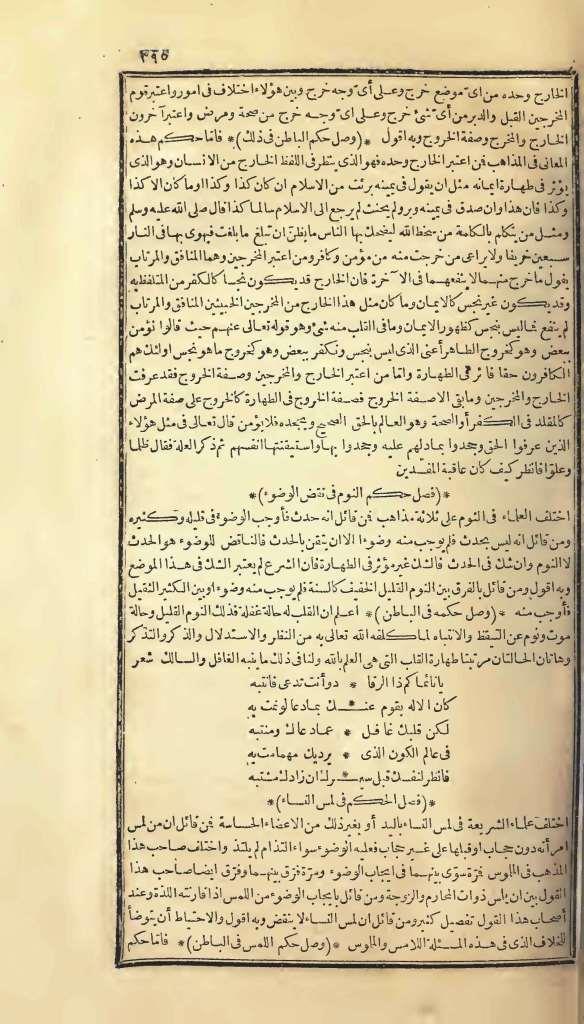 ٤٩٥
الخارج وحده من أي موضع خرج وعلى أي وجه خرج وبين هؤلاء اختلاف في أمور واعتبر قوم
المخرجين القبل والدبر من أي شئ خرج وعلى أي وجه خرج من صحة ومرض واعتبر آخرون
الخارج والمخرج وصفة الخروج وبه أقول *(وصل حكم الباطن في ذلك)* فأما حكم هذه
المعاني في المذاهب فمن اعتبر الخارج وحده فهو الذي ينظر في اللفظ الخارج من الانسان وهو الذي
يؤثر في طهارة ايمانه مثل ان يقول في يمينه برئت من الاسلام ان كان كذا وكذا أو ما كان الا كذا
وكذا فان هذا وان صدق في يمينه وبر ولم يحنث لم يرجع الى الاسلام سالما كذا قال صلى الله عليه وسلم
ومثل من يتكلم بالكلمة من سخط الله ليضحك بها الناس ما يظن ان تبلغ ما بلغت فيهوى بها في النار
سبعين خريفا ولا يراعى من خرجت منه من مؤمن وكافر ومن اعتبر المخرجين وهما المنافق والمرتاب
يقول ما خرج منهما لا ينفعهما في الآخرة فان الخارج قد يكون نجسا كالكفر من المتلفظ به
وقد يكون غير نجس كالايمان وما كان مثل هذا الخارج من المخرجين الخبيثين المنافق والمرتاب
لم ينفع فما ليس بنجس كظهور الايمان وما في القلب منه شئ وهو قوله تعالى عنهم حيث قالوا نؤمن
ببعض وهو كخروج الطاهر أعنى الذي ليس بنجس ونكفر ببعض وهو كخروج ما هو نجس أولئك هم
الكافرون حقا فأثر في الطهارة وأما من اعتبر الخارج والمخرجين وصفة الخروج فقد عرفت
الخارج والمخرجين وما بقى الا صفة الخروج فصفة الخروج في الطهارة كالخروج على صفة المرض
كالمقلد في الكفر أو الصحة وهو العالم بالحق الصحيح ويجحده فلا يؤمن قال تعالى في مثل هؤلاء
الذين عرفوا الحق وجحدوا بما دلهم عليه وجحدوا بها واستيقنتها أنفسهم ثم ذكر العلة فقال ظلما
وعلوا فانظر كيف كان عاقبة المفسدين
*(فصل حكم النوم في نقض الوضوء)*
اختلف العلماء في النوم على ثلاثة مذاهب فمن قائل انه حدث فأوجب الوضوء في قليله وكثيره
ومن قائل انه ليس بحدث فلم يوجب منه وضوءا الا ان يتيقن بالحدث فالناقض للوضوء هو الحدث
لا النوم وان شك في الحدث فالشك غير مؤثر في الطهارة فان الشرع لم يعتبر الشك في هذا الموضع
وبه أقول ومن قائل بالفرق بين النوم القليل الخفيف كالسنة فلم يوجب منه وضوءا وبين الكثير الثقيل
فأوجب منه *(وصل حكمه في الباطن)* أعلم ان القلب له حالة غفلة فذلك النوم القليل وحالة
موت ونوم عن التيقظ والانتباه لما كلفه الله تعالى به من النظر والاستدلال والذكر والتذكر
وهاتان الحالتان مزيلتا طهارة القلب التي هي العلم بالله ولنا في ذلك ما ينبه الغافل والسالك شعر
يا نائما كم ذا الرقا * د وأنت تدعى فانتبه
كان الاله يقوم عنـ * ـك بما دعا لو نمت به
لكن قلبك غافل * عما دعاك ومنتبه
في عالم الكون الذي * يرديك مهما مت به
فانظر لنفسك قبل سيـ * ـرك ان زادك مشتبه
*(فصل الحكم في لمس النساء)*
اختلف علماء الشريعة في لمس النساء باليد أو بغير ذلك من الاعضاء الحساسة فمن قائل ان من لمس
امرأته دون حجاب أو قبلها على غير حجاب فعليه الوضوء سواء التذ أم لم يلتذ واختلف صاحب هذا
المذهب في الملموس فمرة سوى بينهما في ايجاب الوضوء ومرة فرق بينهما وفرق أيضا صاحب هذا
القول بين ان يلمس ذوات المحارم والزوجة ومن قائل بايجاب الوضوء من اللمس اذا قارنته اللذة وعند
أصحاب هذا القول تفصيل كثير ومن قائل ان لمس النساء لا ينقض وبه أقول والاحتياط أن يتوضأ
للخلاف الذي في هذه المسئلة اللامس والملموس *(وصل حكم اللمس في الباطن)* فأما حكم